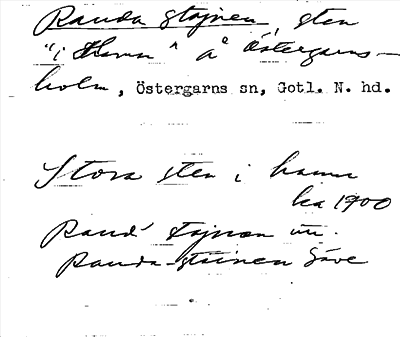 Randa stajnen, sten
"i Hamn" å Östergarns-
holm, Östergarns sn, Gotl. N. hd.
Stora sten i hamn
ka 1900
Rand stajnen
Randa-stainen Säve